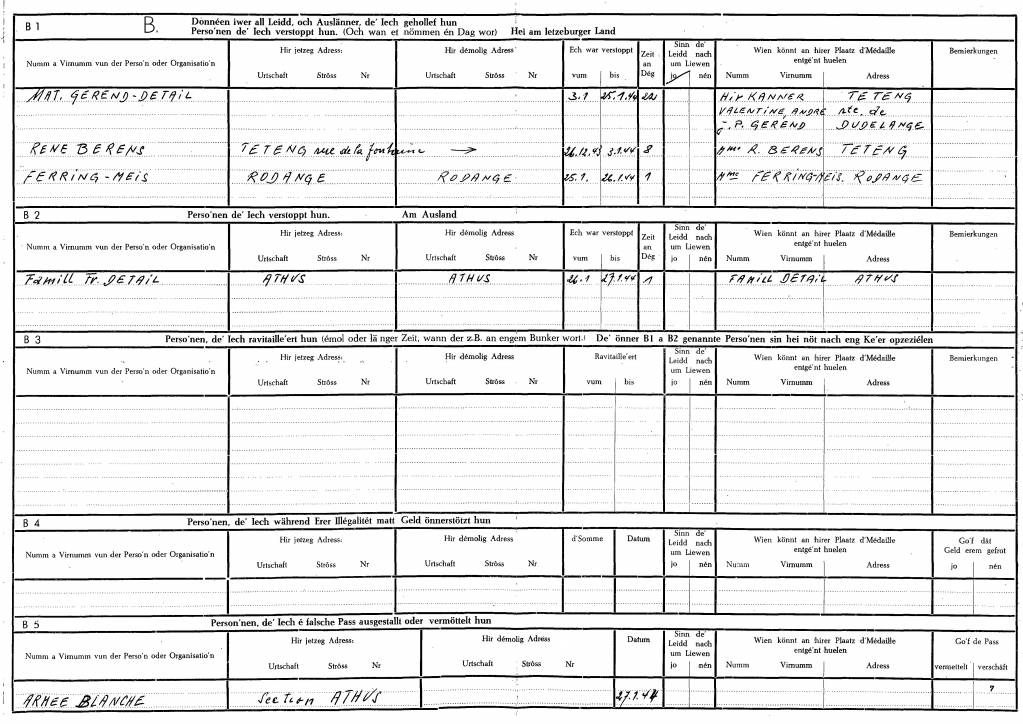 B 1 B. Donnéen iwer all Leidd, och Auslänner, de' Iech gehollef hun
Perso'nen de' Iech verstoppt hun. (Och wan et nömmen én Dag wor) Hei am letzeburger Land
Numm a Virnumm vun der Perso'n oder Organisatio'n Hir jetzeg Adress: Hir démolig Adress Ech war verstoppt Zeit an Dég Sinn de' Leidd nach um Liewen Wien könnt an hirer Plaatz d'Médaille entgé'nt huelen Bemierkungen
Urtschaft Ströss Nr Urtschaft Ströss Nr vum bis jo nén Numm Virnumm Adress
MAT. GEREND-DETAIL 3.1 25.1.44 22 Hir KANNER TETENG
VALENTINE, ANDRÉ rte. de
J.P. GEREND DUDELANGE
RENE BERENS TETENG rue de la fontaine → 26.12.43 3.1.44 8 Mme R. BERENS TETENG
FERRING-MEIS RODANGE RODANGE 25.1. 26.1.44 1 Mme FERRING-MEIS. RODANGE
B 2 Perso'nen de' Iech verstoppt hun. Am Ausland
Numm a Virnumm vun der Perso'n oder Organisatio'n Hir jetzeg Adress: Hir démolig Adress Ech war verstoppt Zeit an Dég Sinn de' Leidd nach um Liewen Wien könnt an hirer Plaatz d'Médaille entgé'nt huelen Bemierkungen
Urtschaft Ströss Nr Urtschaft Ströss Nr vum bis jo nén Numm Virnumm Adress
Famill Fr. DETAIL ATHUS ATHUS 26.1 27.1.44 1 FAMILL DETAIL ATHUS
B 3 Perso'nen, de' Iech ravitaille'ert hun (émol oder länger Zeit, wann der z.B. an engem Bunker wort.) De' önner B1 a B2 genannte Perso'nen sin hei nöt nach eng Ke'er opzeziélen
Numm a Virnumm vun der Perso'n oder Organisatio'n Hir jetzeg Adress: Hir démolig Adress Ravitaille'ert Sinn de' Leidd nach um Liewen Wien könnt an hirer Plaatz d'Médaille entgé'nt huelen Bemierkungen
Urtschaft Ströss Nr Urtschaft Ströss Nr vum bis jo nén Numm Virnumm Adress
B 4 Perso'nen, de' Iech während Erer Illégalitét matt Geld önnerstötzt hun
Numm a Virnumm vun der Perso'n oder Organisatio'n Hir jetzeg Adress: Hir démolig Adress d'Somme Datum Sinn de' Leidd nach um Liewen Wien könnt an hirer Plaatz d'Médaille entgé'nt huelen Go'f dât Geld erem gefrot
Urtschaft Ströss Nr Urtschaft Ströss Nr jo nén Numm Virnumm Adress jo nén
B 5 Person'nen, de' Iech é falsche Pass ausgestallt oder vermöttelt hun
Numm a Virnumm vun der Perso'n oder Organisatio'n Hir jetzeg Adress: Hir démolig Adress Datum Sinn de' Leidd nach um Liewen Wien könnt an hirer Plaatz d'Médaille entgé'nt huelen Go'f de Pass
Urtschaft Ströss Nr Urtschaft Ströss Nr jo nén Numm Virnumm Adress vermettelt verschäft
ARMEE BLANCHE Section ATHUS 27.1.44 7